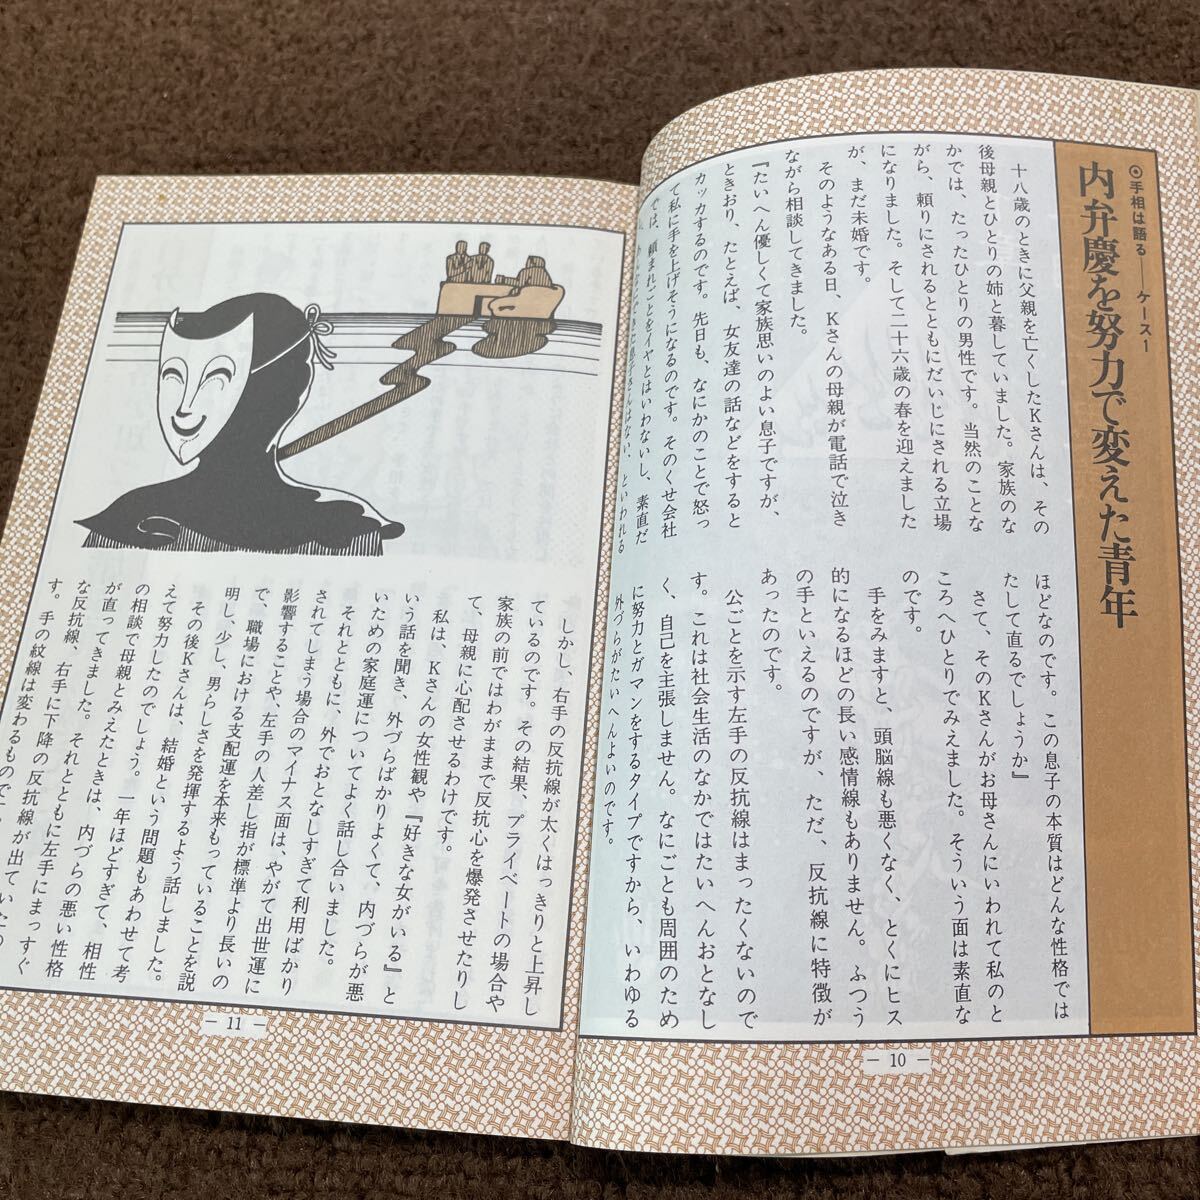 ◉手相は語る──ケース1
内弁慶を努力で変えた青年
十八歳のときに父親を亡くしたKさんは、その
後母親とひとりの姉と暮していました。家族のな
かでは、たったひとりの男性です。当然のことな
がら、頼りにされるとともにだいじにされる立場
になりました。そして二十六歳の春を迎えました
が、まだ未婚です。
そのようなある日、Kさんの母親が電話で泣き
ながら相談してきました。
『たいへん優しくて家族思いのよい息子ですが、
ときおり、たとえば、女友達の話などをすると
カッカするのです。先日も、なにかのことで怒っ
て私に手を上げそうになるのです。そのくせ会社
では、頼まれごとをイヤとはいわないし、素直だ
息子さんはない、といわれる
ほどなのです。この息子の本質はどんな性格では
たして直るでしょうか』
さて、そのKさんがお母さんにいわれて私のと
ころへひとりでみえました。そういう面は素直な
のです。
手をみますと、頭脳線も悪くなく、とくにヒス
的になるほどの長い感情線もありません。ふつう
の手といえるのですが、ただ、反抗線に特徴が
あったのです。
公ごとを示す左手の反抗線はまったくないので
す。これは社会生活のなかではたいへんおとなし
く、自己を主張しません。なにごとも周囲のため
に努力とガマンをするタイプですから、いわゆる
外づらがたいへんよいのです。
— 10 —
しかし、右手の反抗線が太くはっきりと上昇し
ているのです。その結果、プライベートの場合や
家族の前ではわがままで反抗心を爆発させたりし
て、母親に心配させるわけです。
私は、Kさんの女性観や『好きな女がいる』と
いう話を聞き、外づらばかりよくて、内づらが悪
いための家庭運についてよく話し合いました。
それとともに、外でおとなしすぎて利用ばかり
されてしまう場合のマイナス面は、やがて出世運に
影響することや、左手の人差し指が標準より長いの
で、職場における支配運を本来もっていることを説
明し、少し、男らしさを発揮するよう話しました。
その後Kさんは、結婚という問題もあわせて考
えて努力したのでしょう。一年ほどすぎて、相性
の相談で母親とみえたときは、内づらの悪い性格
が直ってきました。それとともに左手にまっすぐ
な反抗線、右手に下降の反抗線が出ていたの
す。手の紋線は変わるもので
— 11 —